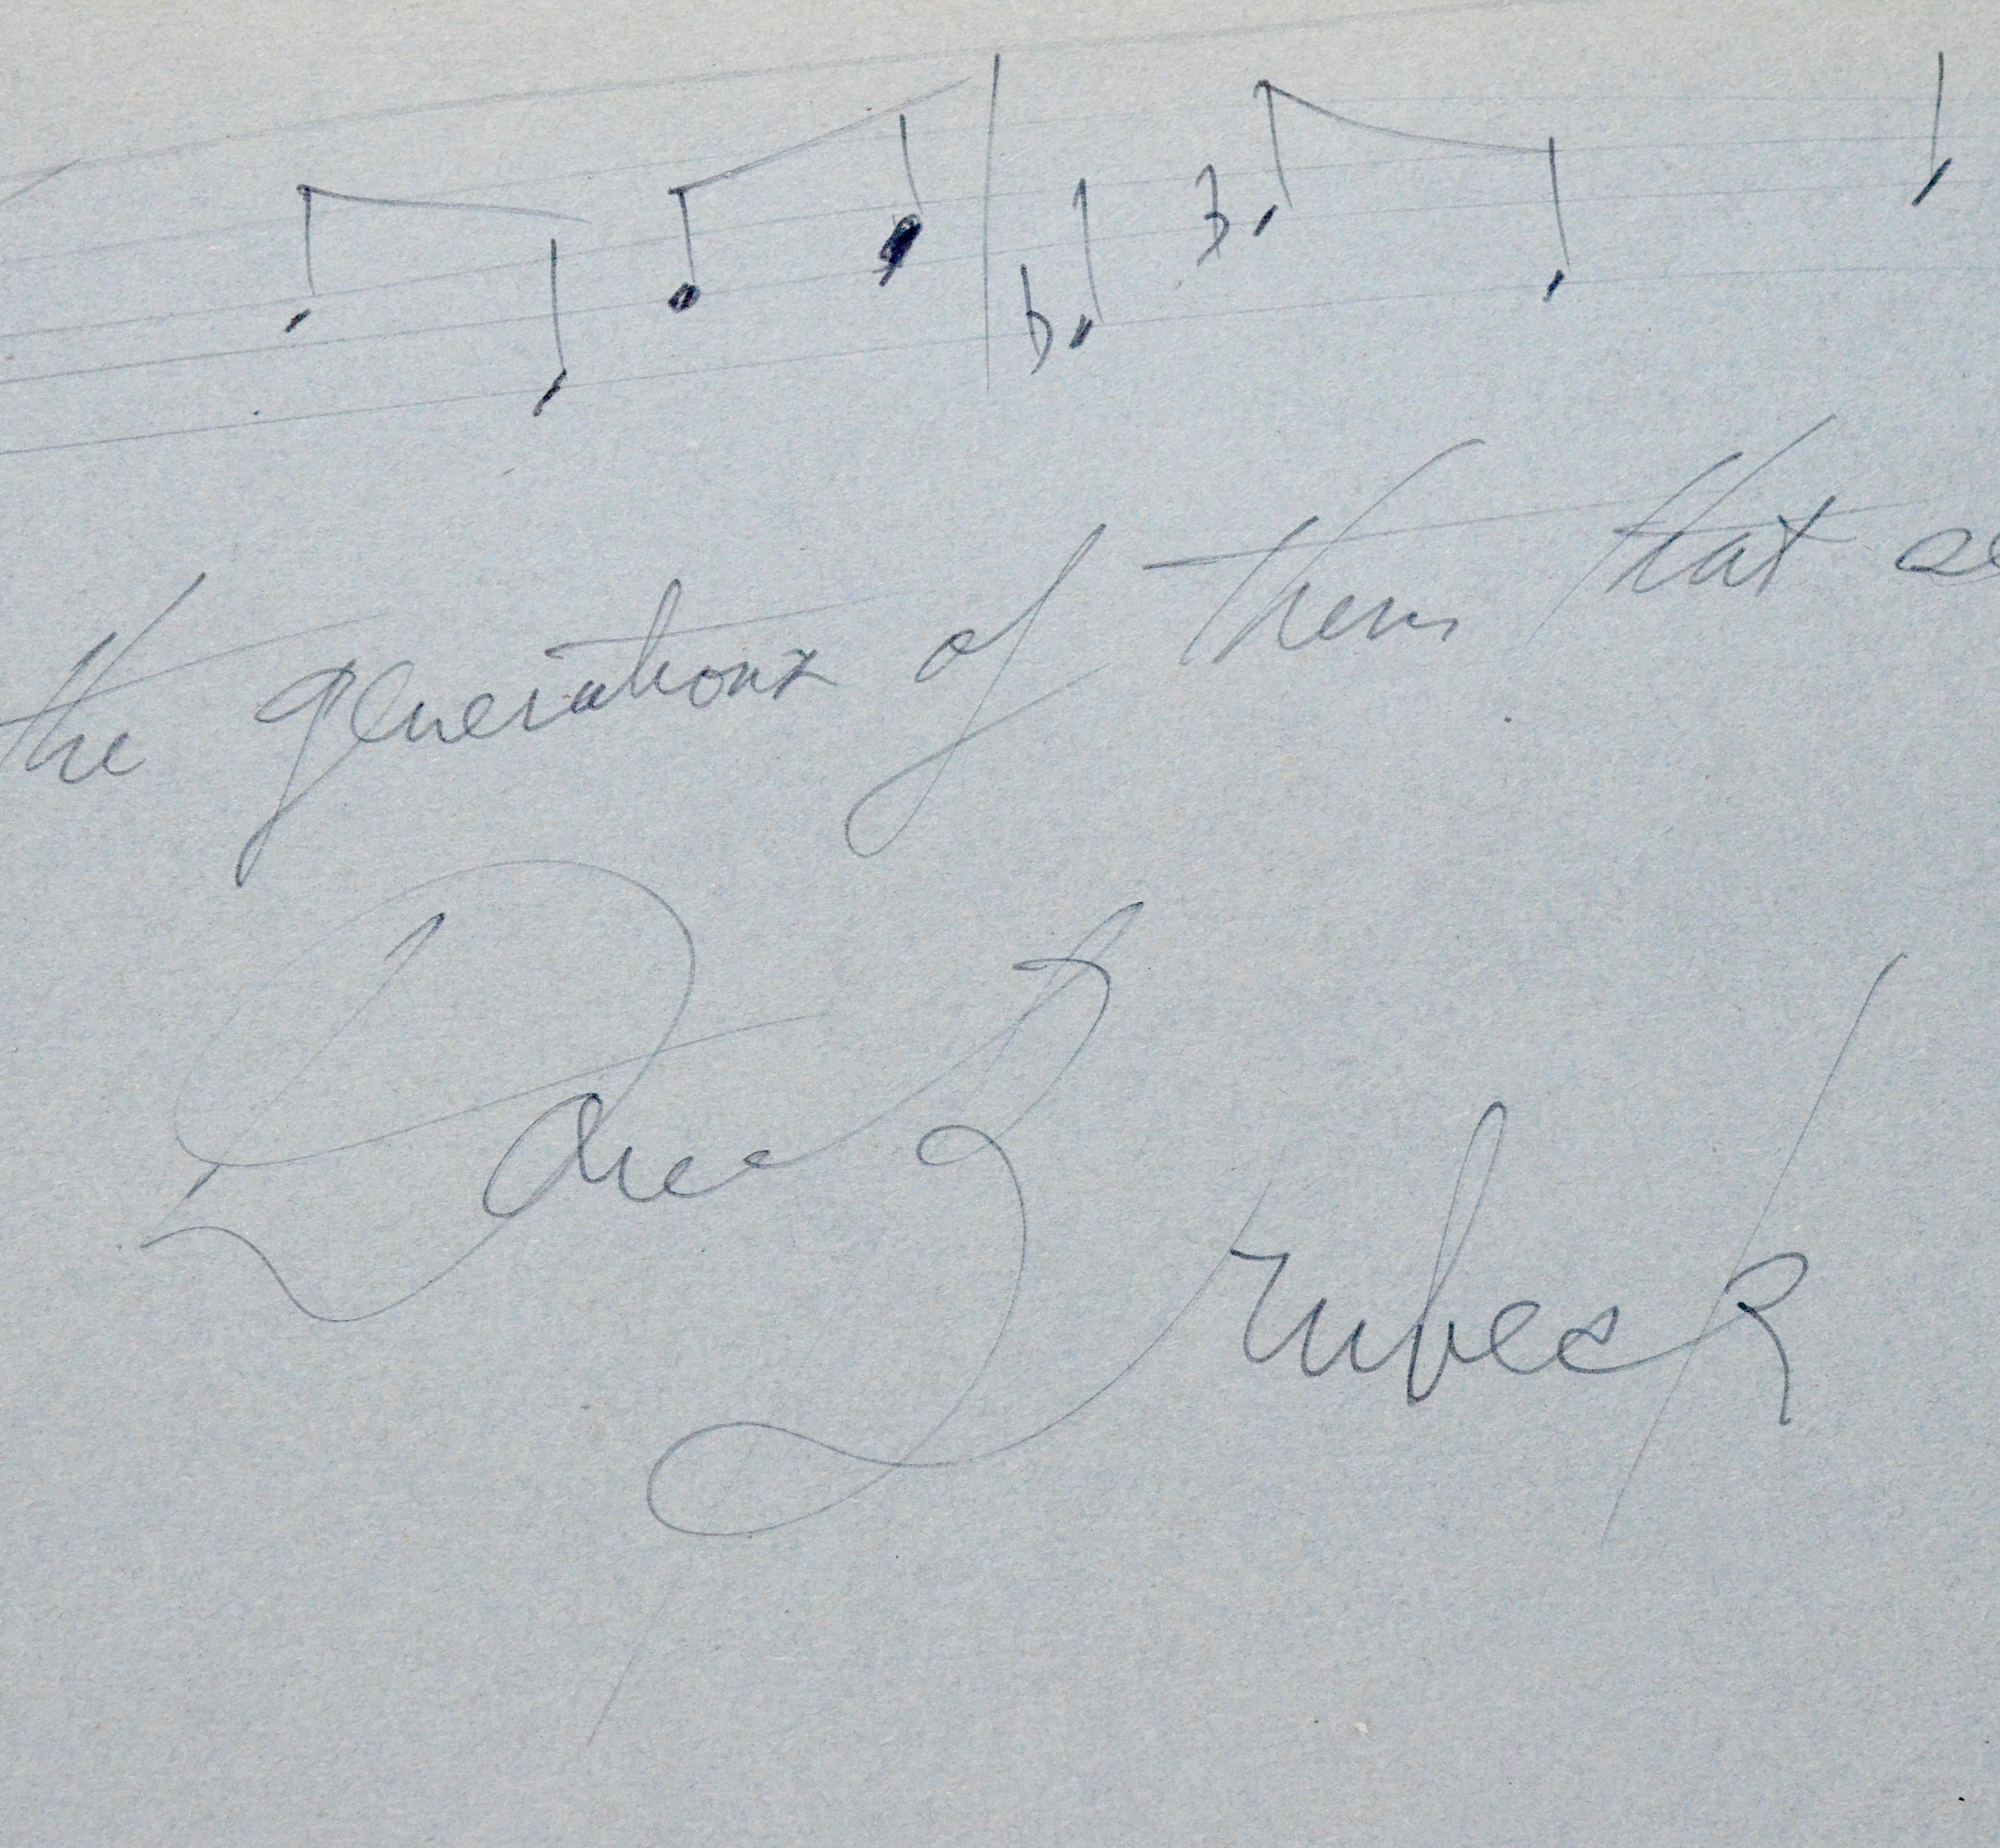 the generations of them that se
Dave Brubeck